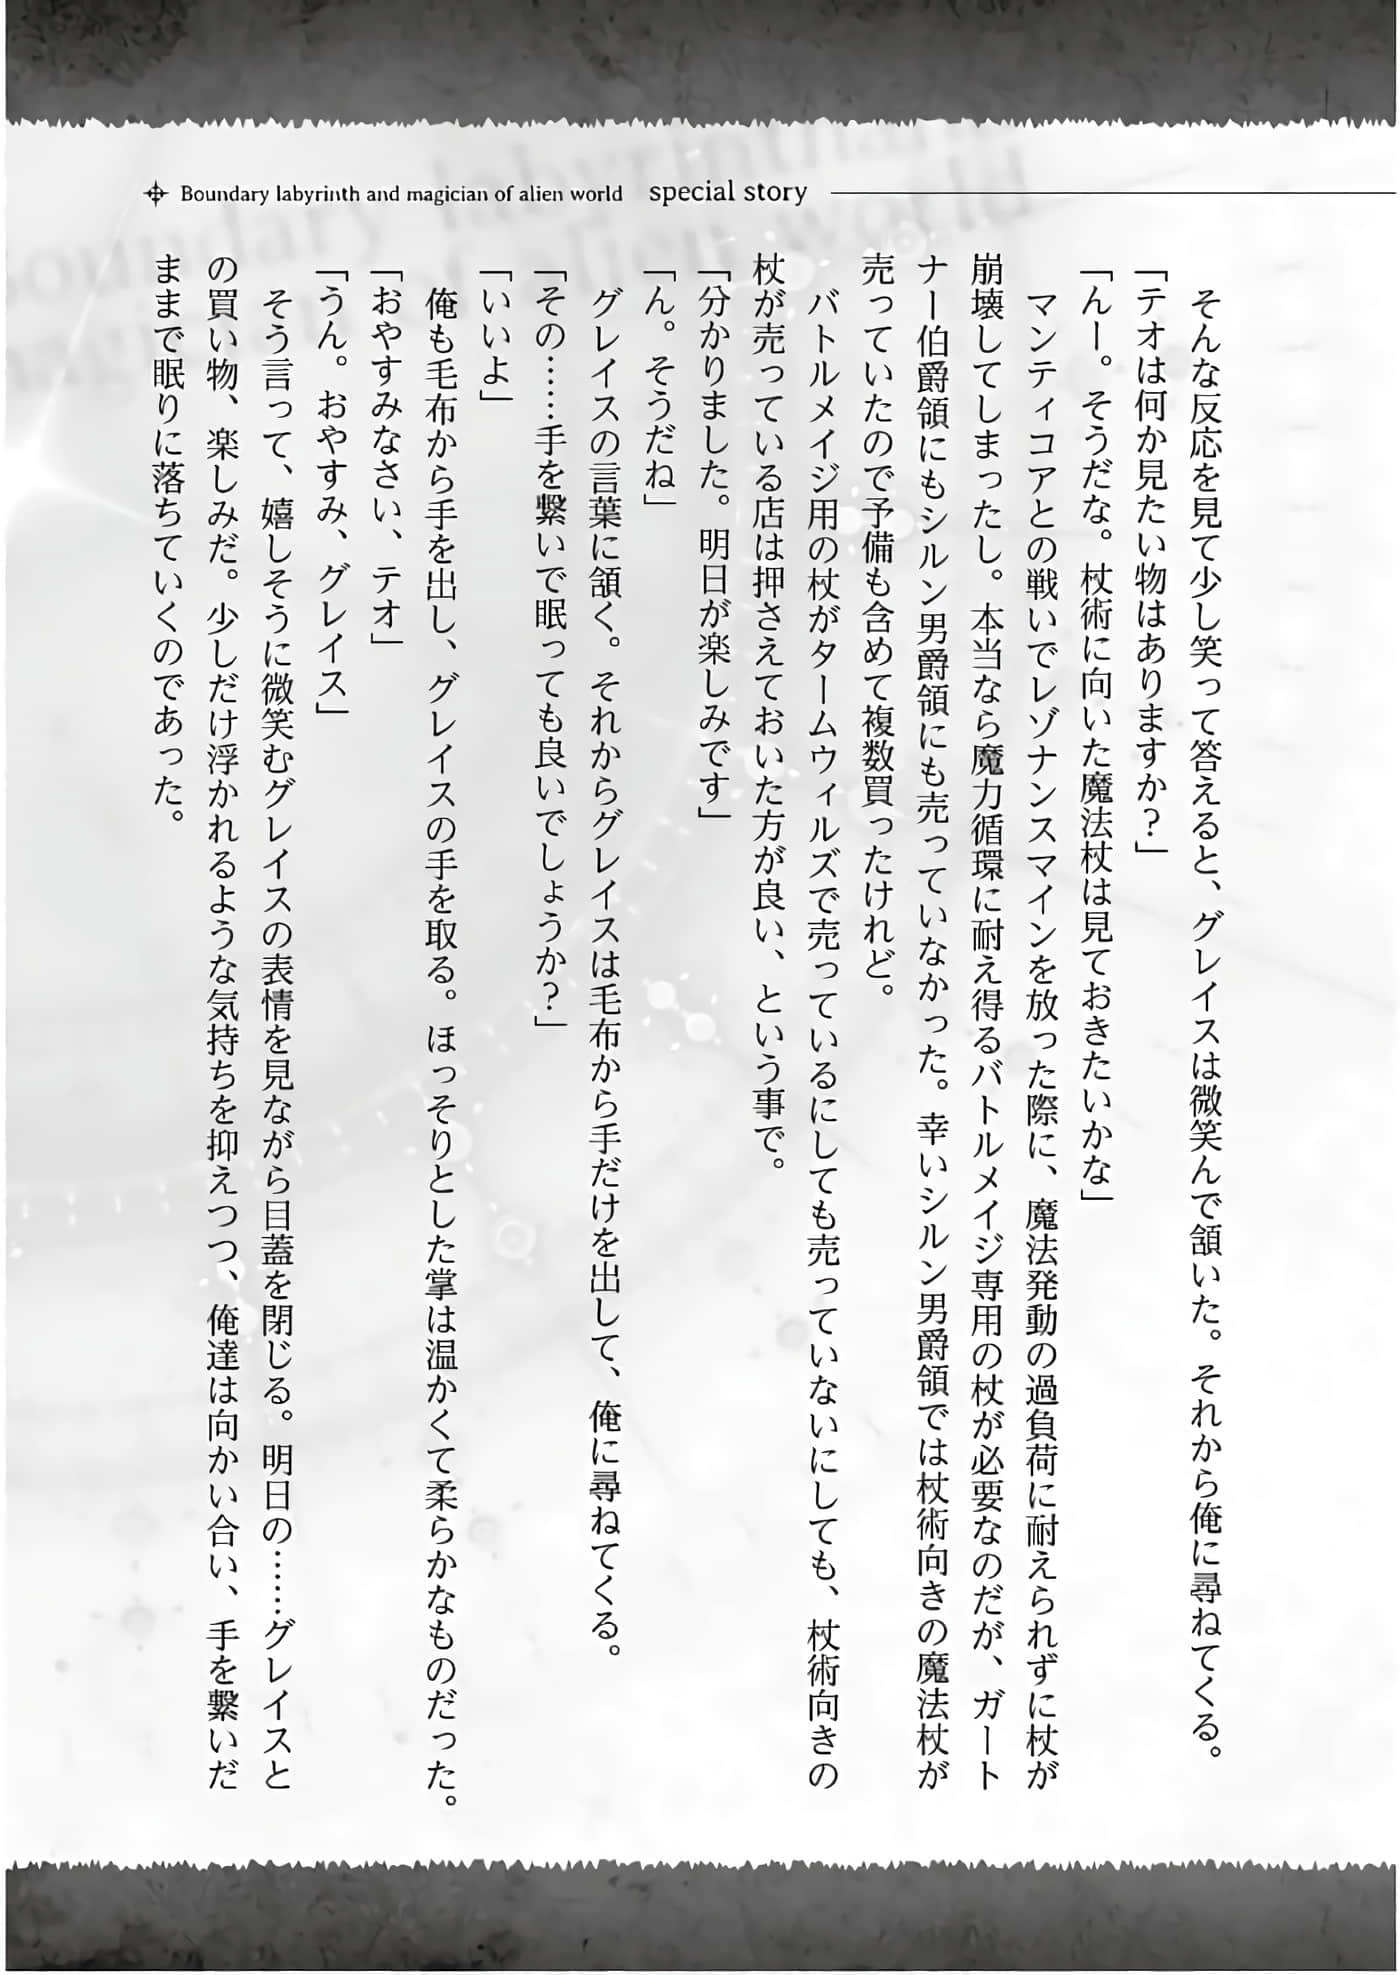 Boundary labyrinth and magician of alien world special story
そんな反応を見て少し笑って答えると、グレイスは微笑んで頷いた。それから俺に尋ねてくる。
「テオは何か見たい物はありますか？」
「んー。そうだな。杖術に向いた魔法杖は見ておきたいかな」
マンティコアとの戦いでレゾナンスマインを放った際に、魔法発動の過負荷に耐えられずに杖が
崩壊してしまったし。本当なら魔力循環に耐え得るバトルメイジ専用の杖が必要なのだが、ガート
ナー伯爵領にもシルン男爵領にも売っていなかった。幸いシルン男爵領では杖術向きの魔法杖が
売っていたので予備も含めて複数買ったけれど。
バトルメイジ用の杖がタームウィルズで売っているにしても売っていないにしても、杖術向きの
杖が売っている店は押さえておいた方が良い、という事で。
「分かりました。明日が楽しみです」
「ん。そうだね」
グレイスの言葉に頷く。それからグレイスは毛布から手だけを出して、俺に尋ねてくる。
「その……手を繋いで眠っても良いでしょうか？」
「いいよ」
俺も毛布から手を出し、グレイスの手を取る。ほっそりとした掌は温かくて柔らかなものだった。
「おやすみなさい、テオ」
「うん。おやすみ、グレイス」
そう言って、嬉しそうに微笑むグレイスの表情を見ながら目蓋を閉じる。明日の……グレイスと
の買い物、楽しみだ。少しだけ浮かれるような気持ちを抑えつつ、俺達は向かい合い、手を繋いだ
ままで眠りに落ちていくのであった。